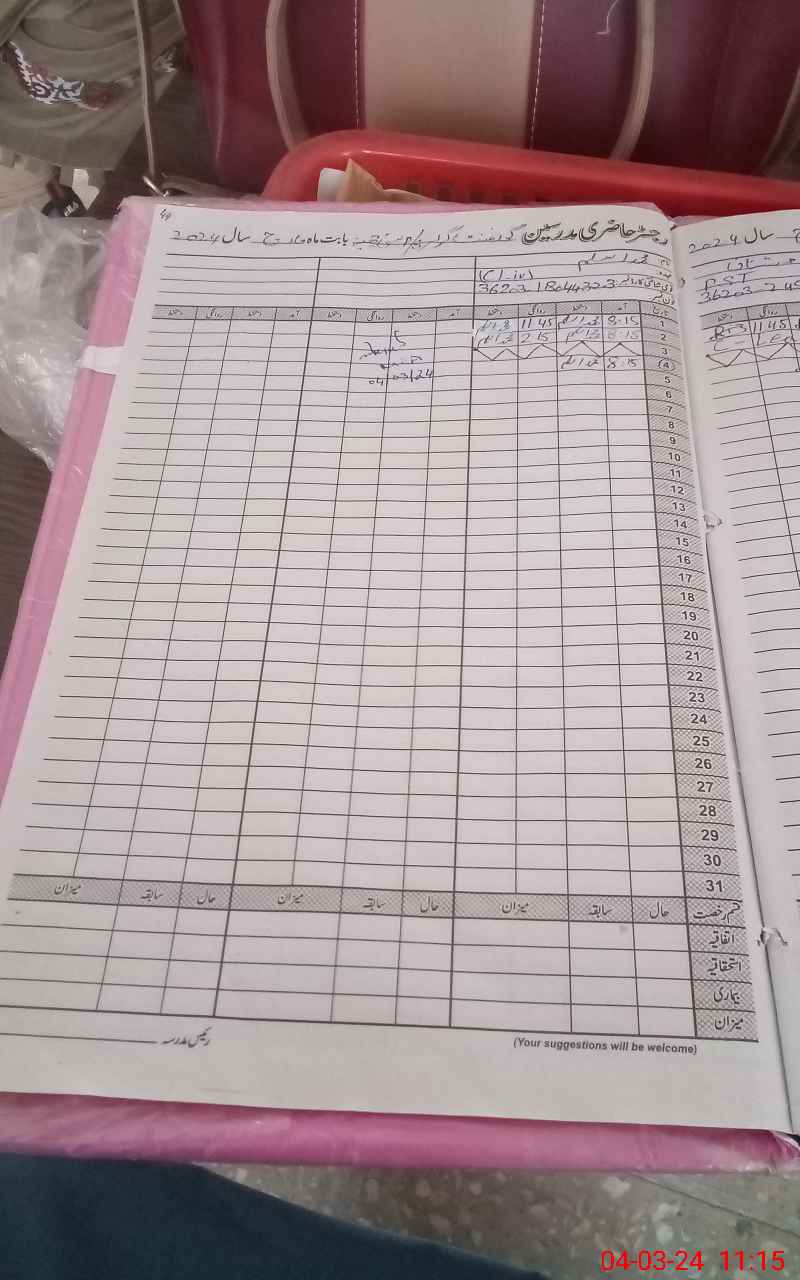 49
رجسٹر حاضری مدرسین گورنمنٹ گرلز بابت ماہ مارچ سال 2024
نام محمد اسلم
عہدہ (C1-iv)
36203 1804432 3
تاریخ آمد دستخط روانگی دستخط آمد دستخط روانگی دستخط آمد دستخط روانگی دستخط
1 8:15 محمد اسلم 11:45 محمد اسلم
2 8:15 محمد اسلم 2:15 محمد اسلم
3
(4) 8:15 محمد اسلم
04/03/24
5
6
7
8
9
10
11
12
13
14
15
16
17
18
19
20
21
22
23
24
25
26
27
28
29
30
31
قسم رخصت حال سابقہ میزان حال سابقہ میزان حال سابقہ میزان
اتفاقیہ
استحقاقیہ
بیماری
میزان
رئیس مدرسہ
(Your suggestions will be welcome)
سال 2024
PST
36203 245
روانگی دستخط
11:45
04-03-24 11:15